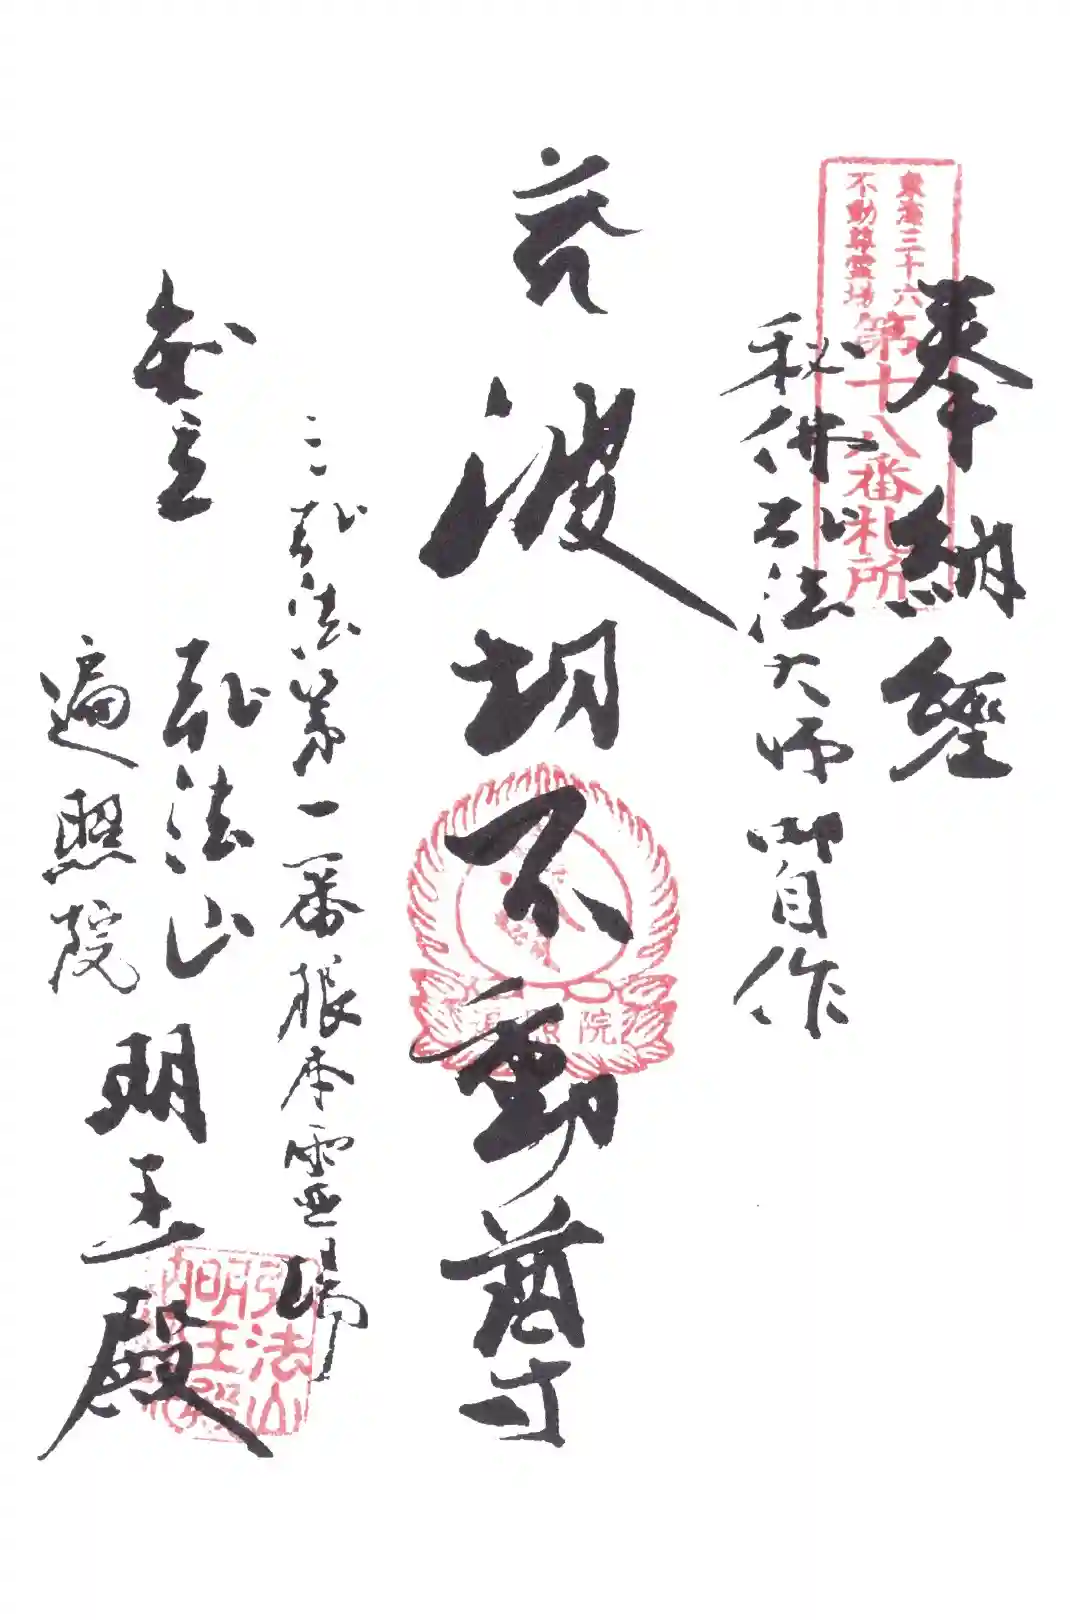 東海三十六
不動尊霊場
第十八番札所
奉納經
秘佛弘法大師御自作
波切不動尊
遍照院
三弘法第一番根本霊場
弘法山
遍照院
明王殿
弘法山
明王殿